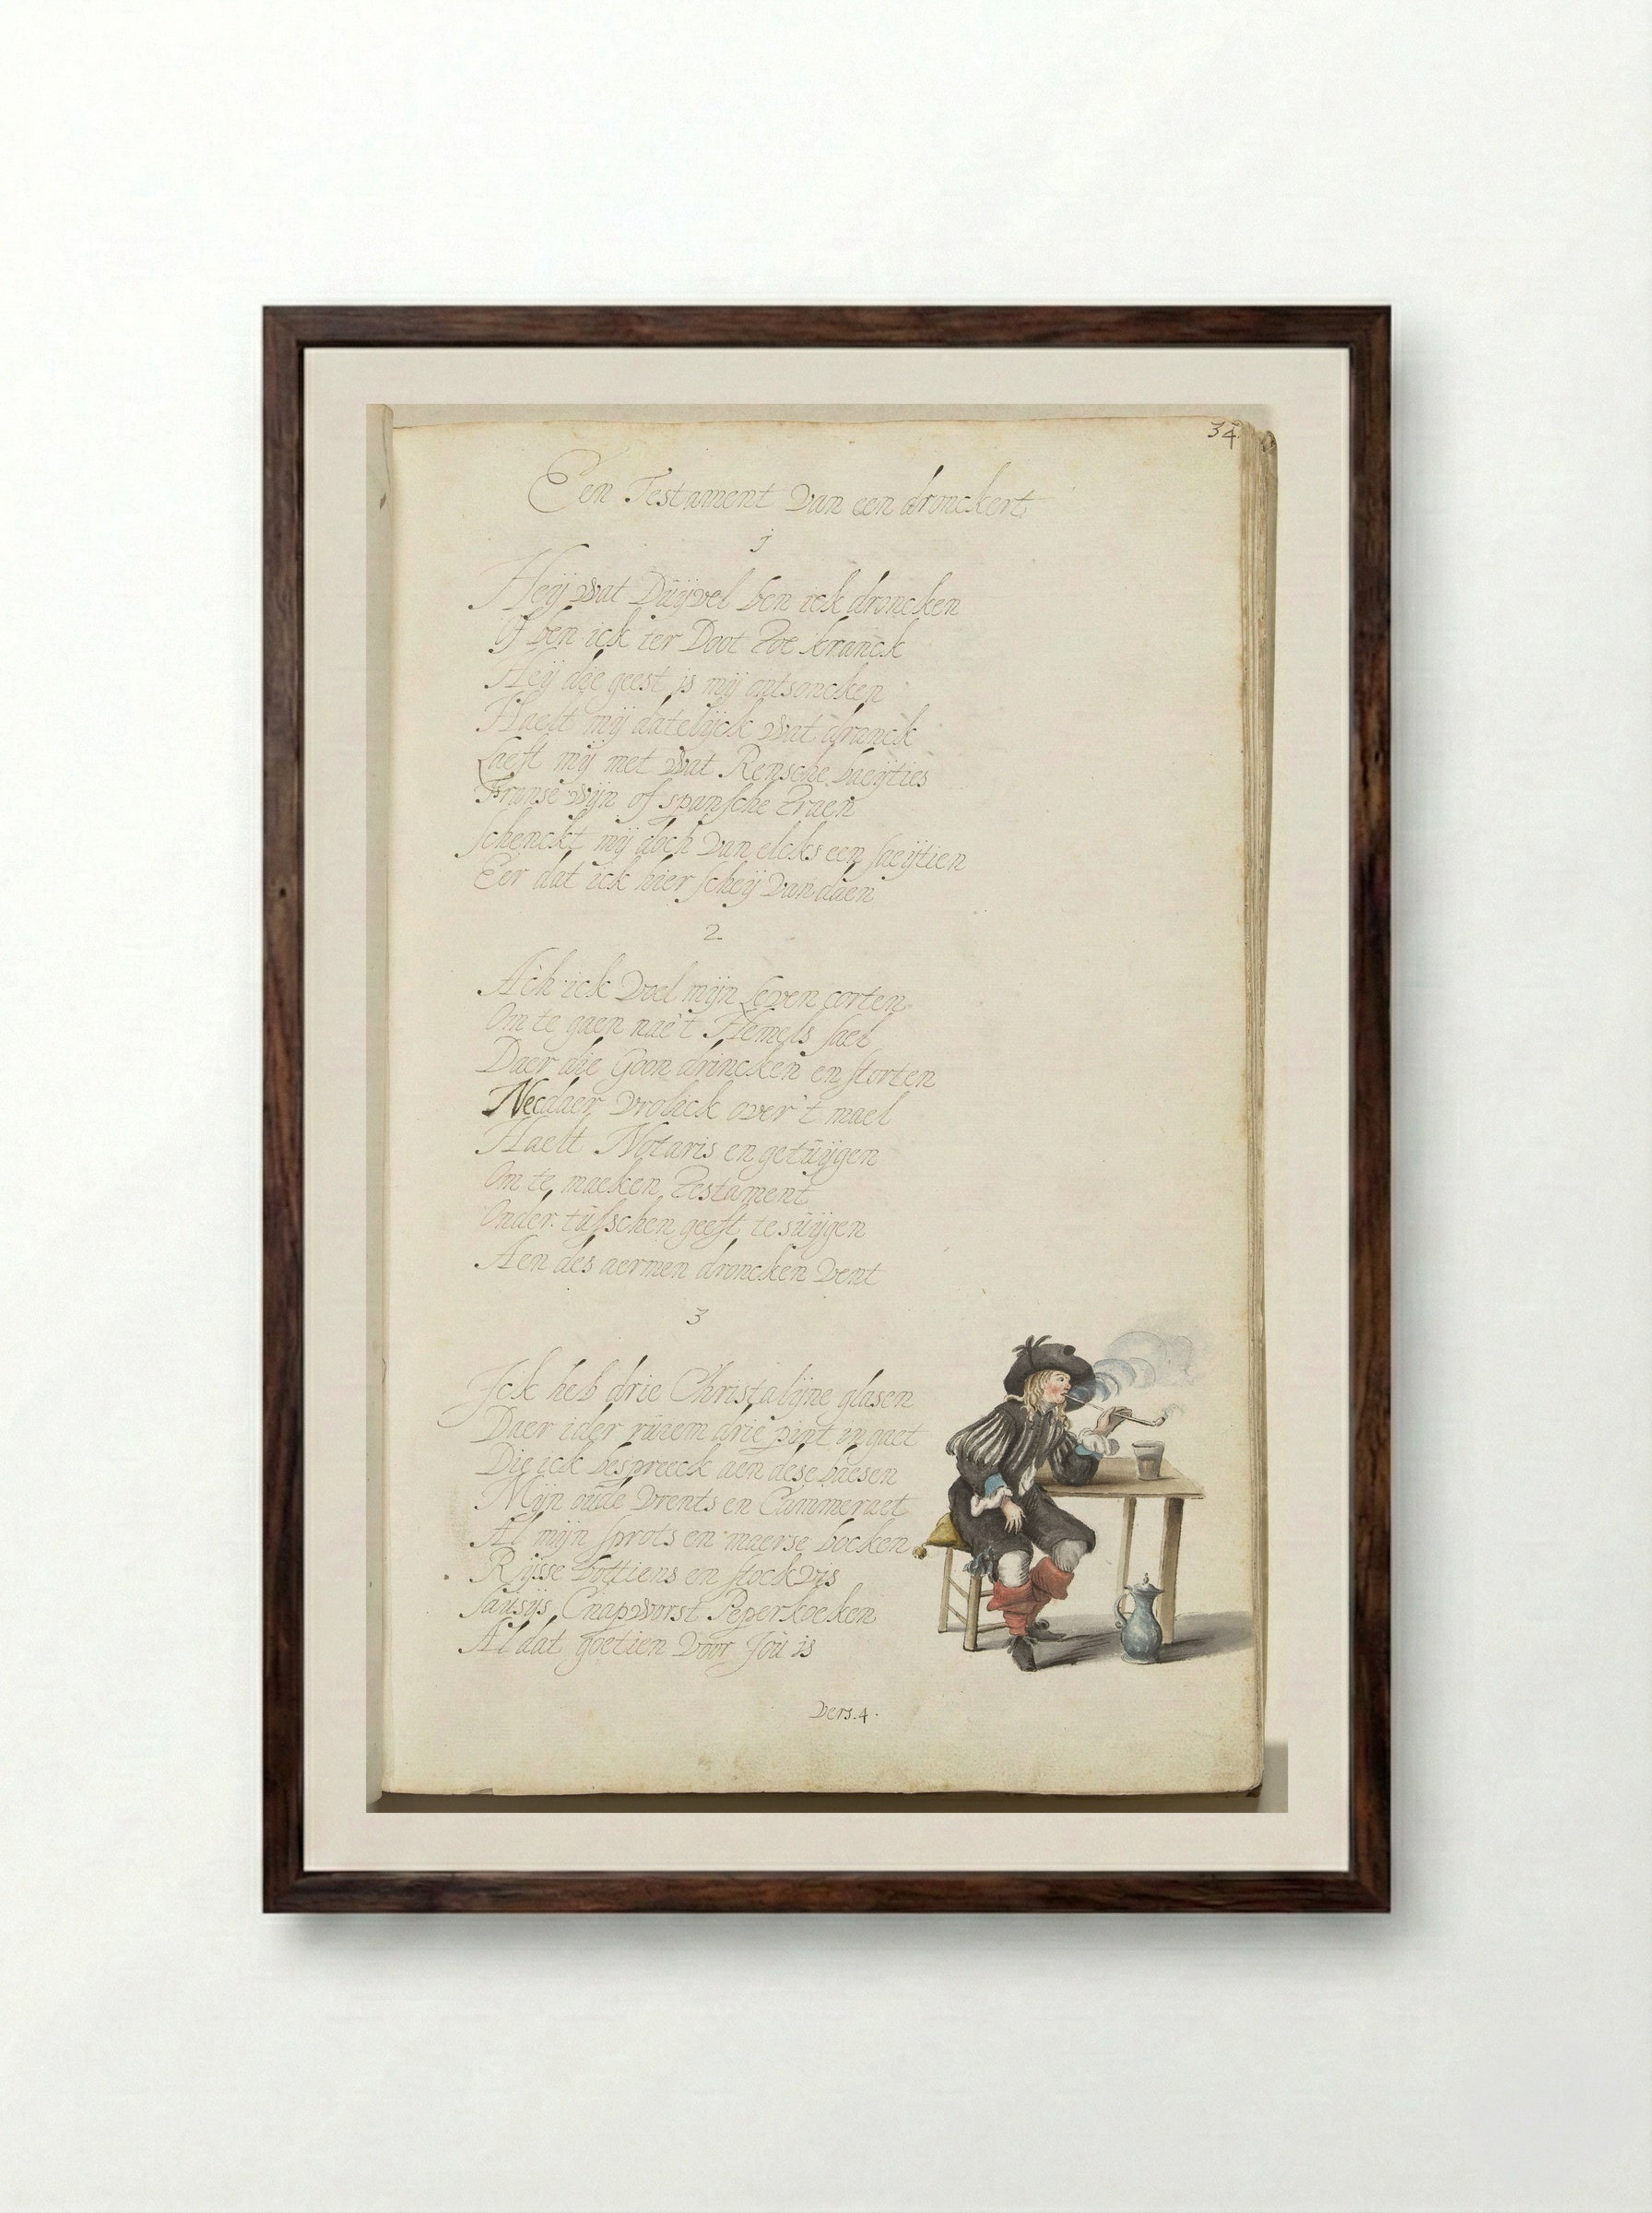 34
Een Testament Van een dronckert
1
Heij wat Duijvel ben ick droncken
Of ben ick ter Doot Zoe kranck
Heij die geest is mij ontsoncken
Haelt mij datelijck wat dranck
Laeft mij met wat Rensche baeijties
Franse wijn of spansche Traen
schenckt mij doch Van elcks een saeijtien
Eer dat ick hier scheij Van daen
2
Ach ick Voel mijn Leven corten
Om te gaen nae't Hemels sael
Daer die Goon drincken en storten
Necdaer Vrolick over't mael
Haelt Notaris en getuijgen
Om te maeken Testament
Onder tusschen geeft te suijgen
Aen des aermen droncken Vent
3
Ick heb drie Christalijne glasen
Daer ider ruiem drie pint in gaet
Die ick bespreeck aen dese baesen
Mijn oude Vrents en Cammeraet
Al mijn sprots en maerse bocken
Rijsse bottiens en stockVis
sausijs Cnapworst Peperkoeken
Al dat goetien Voor Jou is
Vers.4.